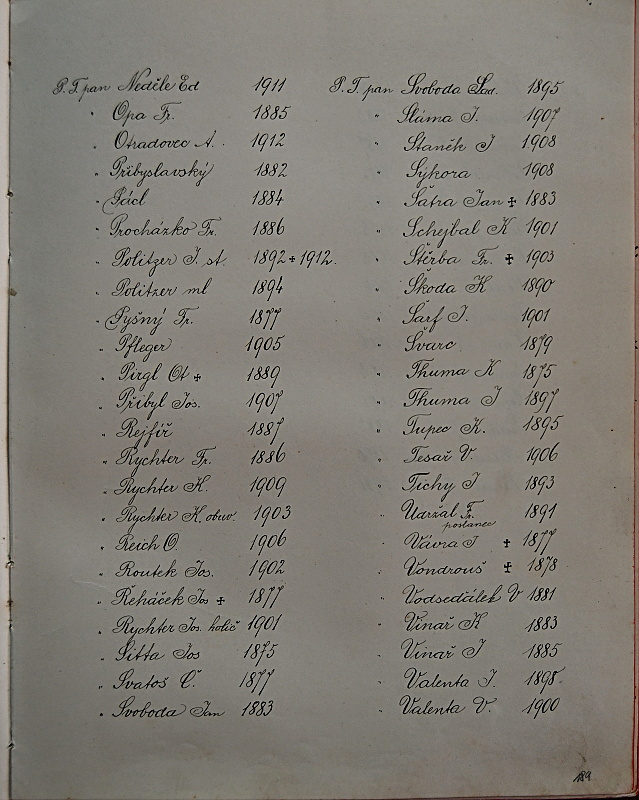 P. T. pan Neděle Ed 1911
" Opa Fr. 1885
" Otradovec A. 1912
" Přibyslavský 1882
" Pácl 1884
" Procházko Fr. 1886
" Politzer J. st. 1892 + 1912.
" Politzer ml 1894
" Pyšný Fr. 1877
" Pfleger 1905
" Pirgl Ot + 1889
" Přibyl Jos. 1907
" Rejfíř 1887
" Rychter Fr. 1886
" Rychter K. 1909
" Rychter K. obuv. 1903
" Reich O. 1906
" Routek Jos. 1902
" Řeháček Jos + 1877
" Rychter Jos. holič 1901
" Sitta Jos 1875
" Svatoš Č. 1877
" Svoboda Jan 1883
P. T. pan Svoboda Lad. 1895
" Sláma J. 1907
" Staněk J 1908
" Sýkora 1908
" Šátra Jan + 1883
" Schejbal K 1901
" Štěrba Fr. + 1903
" Škoda K 1890
" Šarf J. 1901
" Švarc 1879
" Thuma K 1875
" Thuma J 1897
" Tupec K. 1895
" Tesař V. 1906
" Tichy J 1893
" Udržal Fr. 1891
poslanec
" Vávra J + 1877
" Vondrouš + 1878
" Vodsedálek V 1881
" Vinař K 1883
" Vinař J 1885
" Valenta J. 1898.
" Valenta V. 1900
189